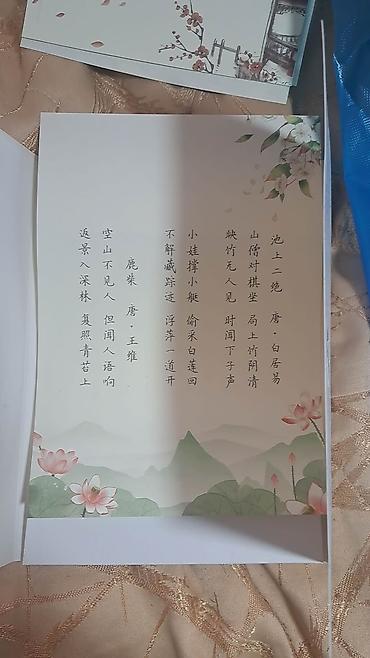 池上二绝 唐·白居易
山僧对棋坐 局上竹阴清
映竹无人见 时闻下子声
小娃撑小艇 偷采白莲回
不解藏踪迹 浮萍一道开
鹿柴 唐·王维
空山不见人 但闻人语响
返景入深林 复照青苔上